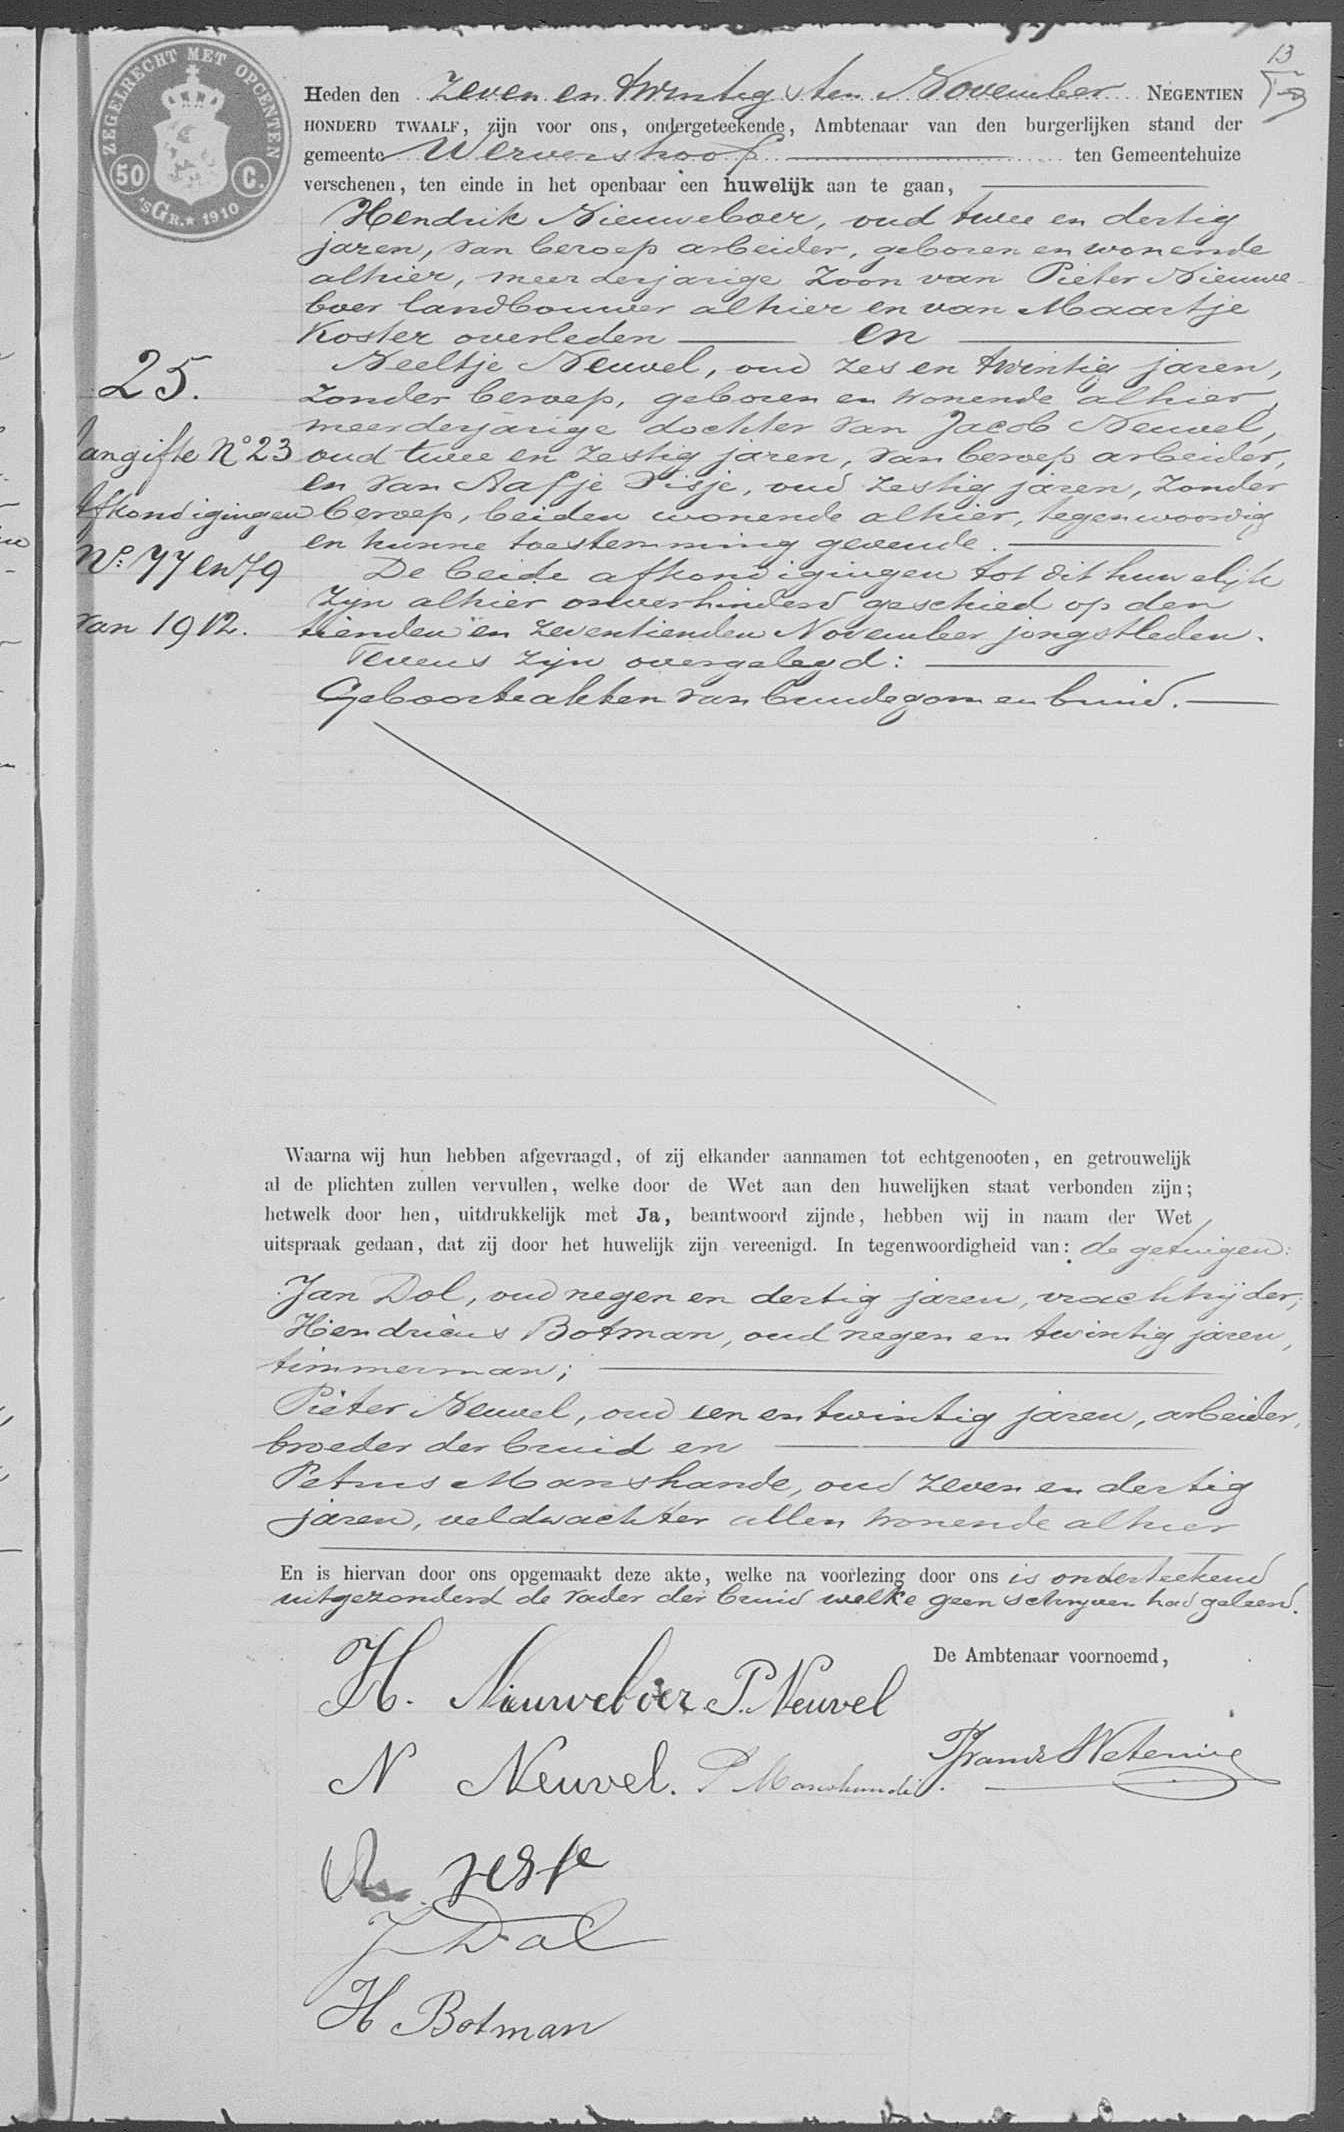 ZEGELRECHT MET OPCENTEN
50 C.
'sGR.★1910
13
Heden den zeven en twintigsten November NEGENTIEN
HONDERD TWAALF, zijn voor ons, ondergeteekende, Ambtenaar van den burgerlijken stand der
gemeente Wervershoof ten Gemeentehuize
verschenen, ten einde in het openbaar een huwelijk aan te gaan,
Hendrik Nieuweboer, oud twee en dertig
jaren, van beroep arbeider, geboren en wonende
alhier, meerderjarige zoon van Pieter Nieuwe-
boer landbouwer alhier en van Maartje
Koster overleden en
Neeltje Neuvel, oud zes en twintig jaren,
zonder beroep, geboren en wonende alhier,
meerderjarige dochter van Jacob Neuvel,
oud twee en zestig jaren, van beroep arbeider,
en van Aafje Visje, oud zestig jaren, zonder
beroep, beiden wonende alhier, tegenwoordig
en hunne toestemming gevende.
De beide afkondigingen tot dit huwelijk
zijn alhier onverhinderd geschied op den
tienden en zeventienden November jongstleden.
Tevens zijn overgelegd:
Geboorteakten van bruidegom en bruid.
25.
Aangifte No 23
Afkondigingen
No. 77 en 79
van 1912.
Waarna wij hun hebben afgevraagd, of zij elkander aannamen tot echtgenooten, en getrouwelijk
al de plichten zullen vervullen, welke door de Wet aan den huwelijken staat verbonden zijn;
hetwelk door hen, uitdrukkelijk met Ja, beantwoord zijnde, hebben wij in naam der Wet
uitspraak gedaan, dat zij door het huwelijk zijn vereenigd. In tegenwoordigheid van: de getuigen:
Jan Dol, oud negen en dertig jaren, vrachtrijder;
Hendricus Botman, oud negen en twintig jaren,
timmerman;
Pieter Neuvel, oud een en twintig jaren, arbeider,
broeder der bruid en
Petrus Manshande, oud zeven en dertig
jaren, veldwachter allen wonende alhier
En is hiervan door ons opgemaakt deze akte, welke na voorlezing door ons is onderteekend
uitgezonderd de vader der bruid welke geen schrijven had geleerd.
De Ambtenaar voornoemd,
H. Nieuweboer P. Neuvel
N Neuvel. P Manshande.
J Dol
H Botman